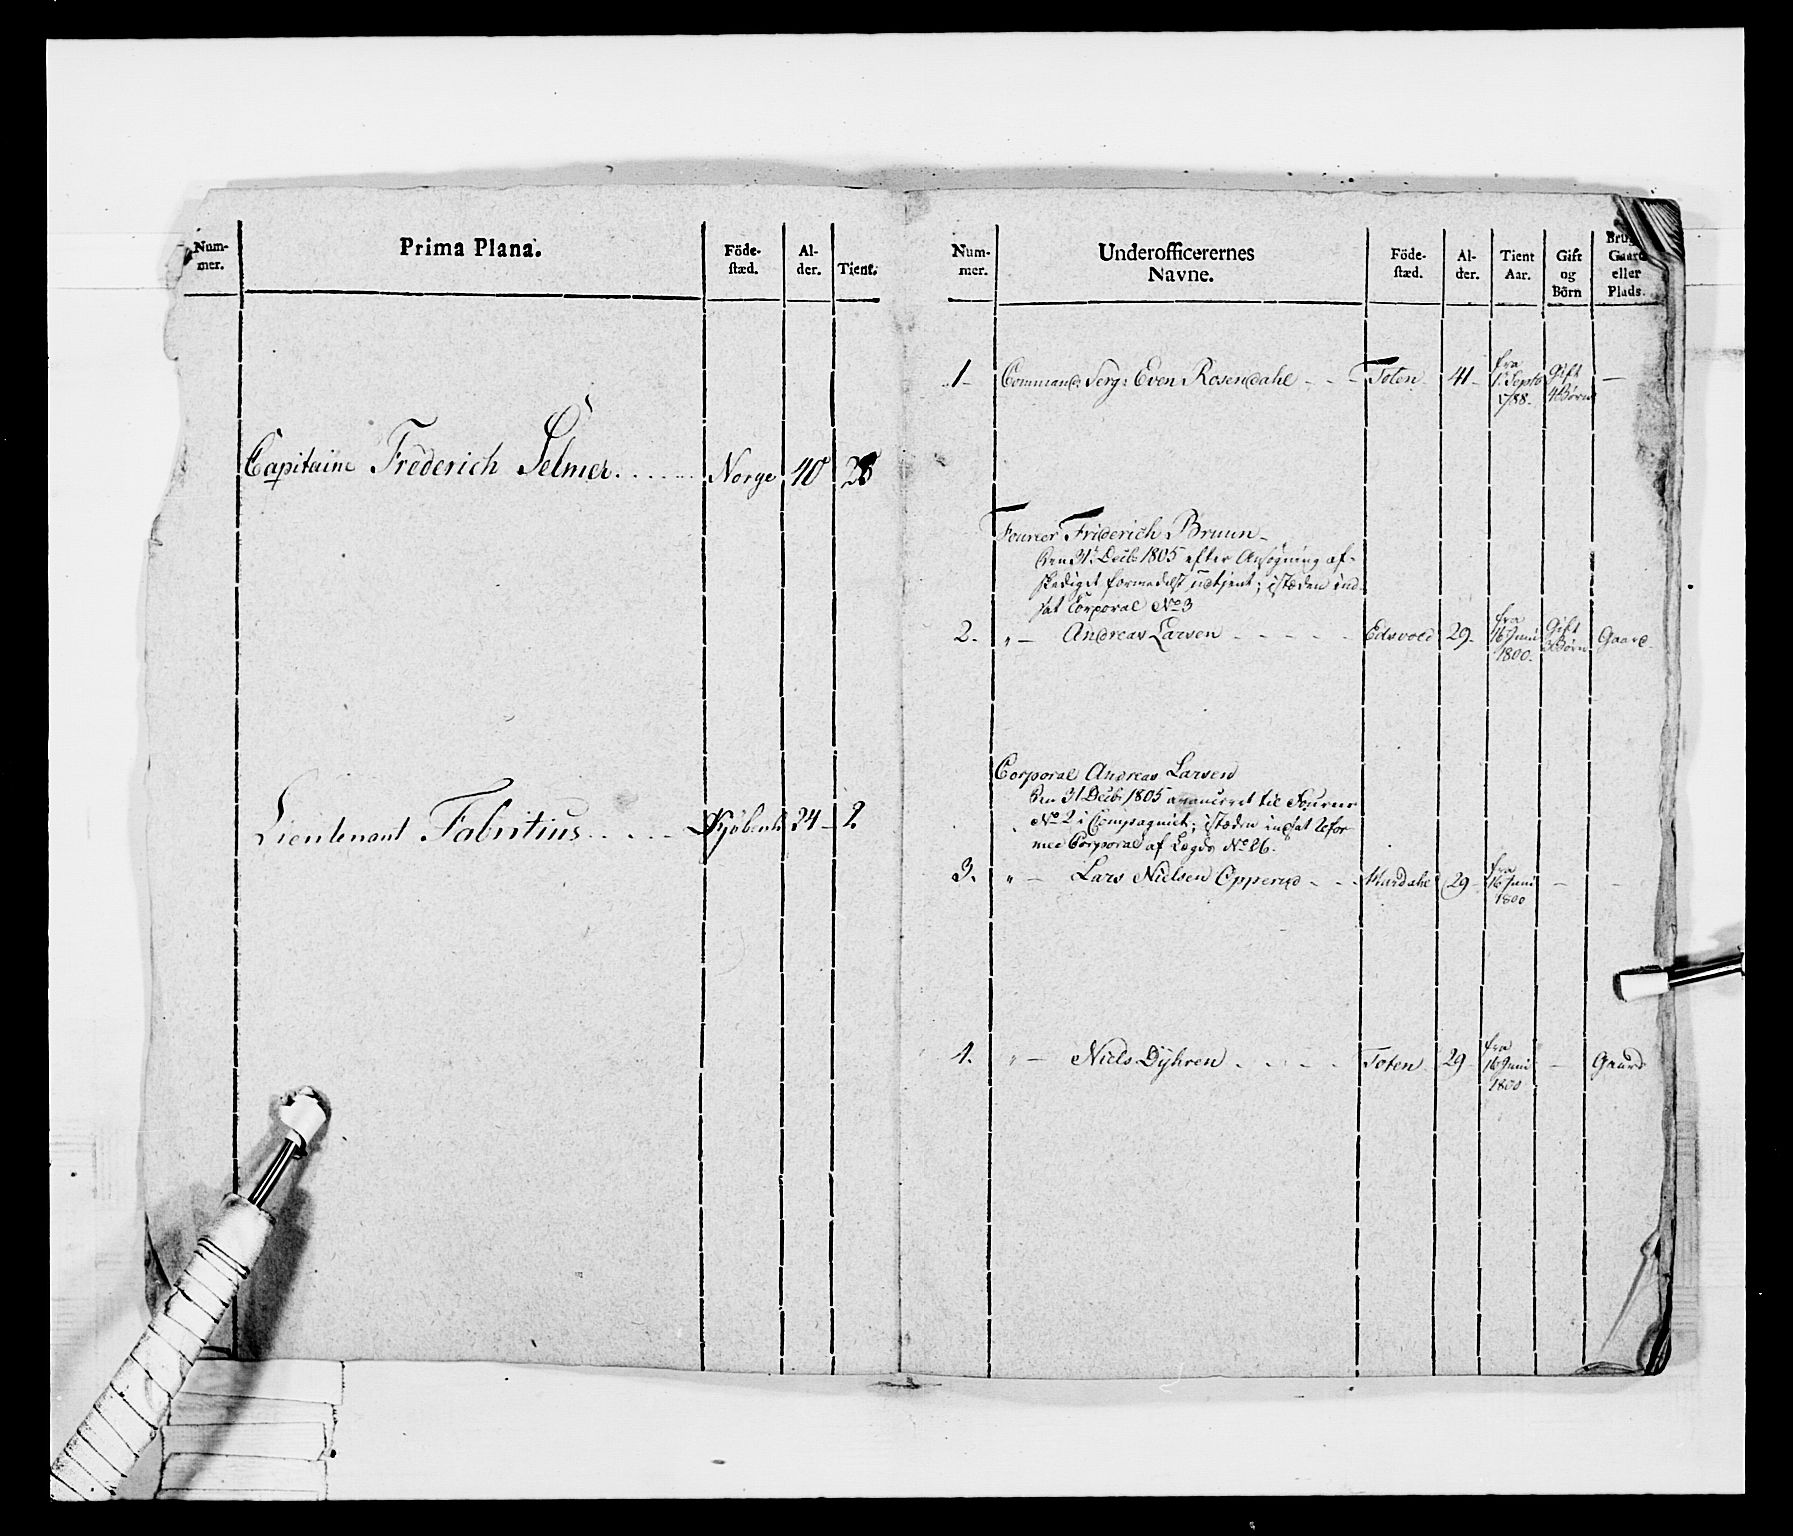 Num-
mer.
Prima Plana.
Föde-
stæd.
Al-
der.
Tient.
Capitaine Frederich Selmer. Norge 40 28
Lieutenant Fabritius Kjøbenh 24 2
Num-
mer.
Underofficerernes
Navne.
Föde-
stæd.
Al-
der.
Tient
Aar.
Gift
og
Börn
Brug
Gaard
eller
Plads.
1 Command: Serg: Even Rosendahl - - - Toten 41 - fra 1 Septb 1788. Gift 4 Børn —
Foureer Friderich Bruun
Den 31 Decb 1805 efter Ansøgning af-
skediget formedelst udtjent; istæden ind-
sat Corporal No 3
2. " — Andreas Larsen - - - - - Edsvold 29 - fra 16 Juni 1800. Gift 3 Børn Gaard.
Corporal Andreas Larsen
Den 31 Decb 1805 avanceret til Foureer
No 2 i Compagniet; istæden indsat Refor
med Corporal af Lægds No 26.
3. " — Lars Nielsen Opperud - - - Hurdahl 29 - fra 16 Juni 1800 — —
4. " — Niels Dyhren - - - - - Toten 29 - fra 16 Juni 1800 — Gaard